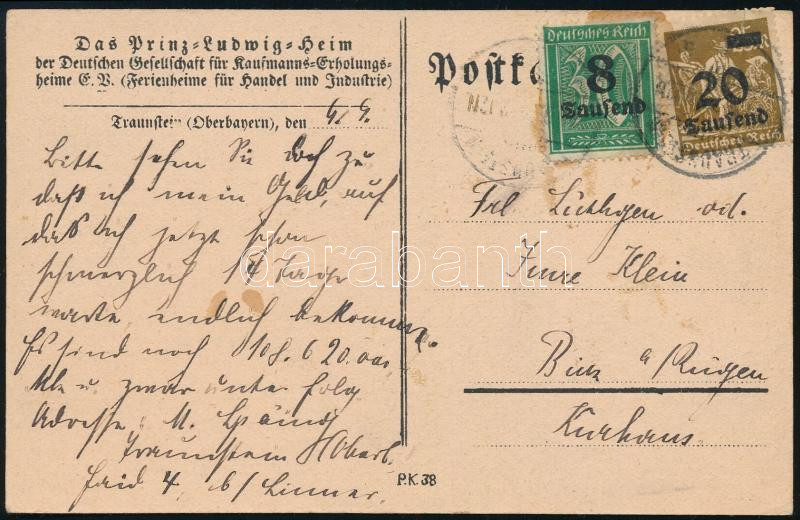 Das Prinz-Ludwig-Heim
der Deutschen Gesellschaft für Kaufmanns-Erholungs-
heime E.V. (Ferienheime für Handel und Industrie)
Traunstein (Oberbayern), den 4./9.
Bitte sehen Sie doch zu
daß ich mein Geld, auf
daß ich jetzt schon
schmerzlich 14 Tage
warte, endlich bekomme.
Es sind noch 108.620.000
Mk u. zwar unter folg
Adresse: M.
Traunstein Oberb.
4, b/
Postk
Deutsches Reich
8
Tausend
20
Tausend
Deutsches Reich
Frl Lüthgen od.
Klein
Binz a/Rügen
Kurhaus
P.K. 38
darabanth